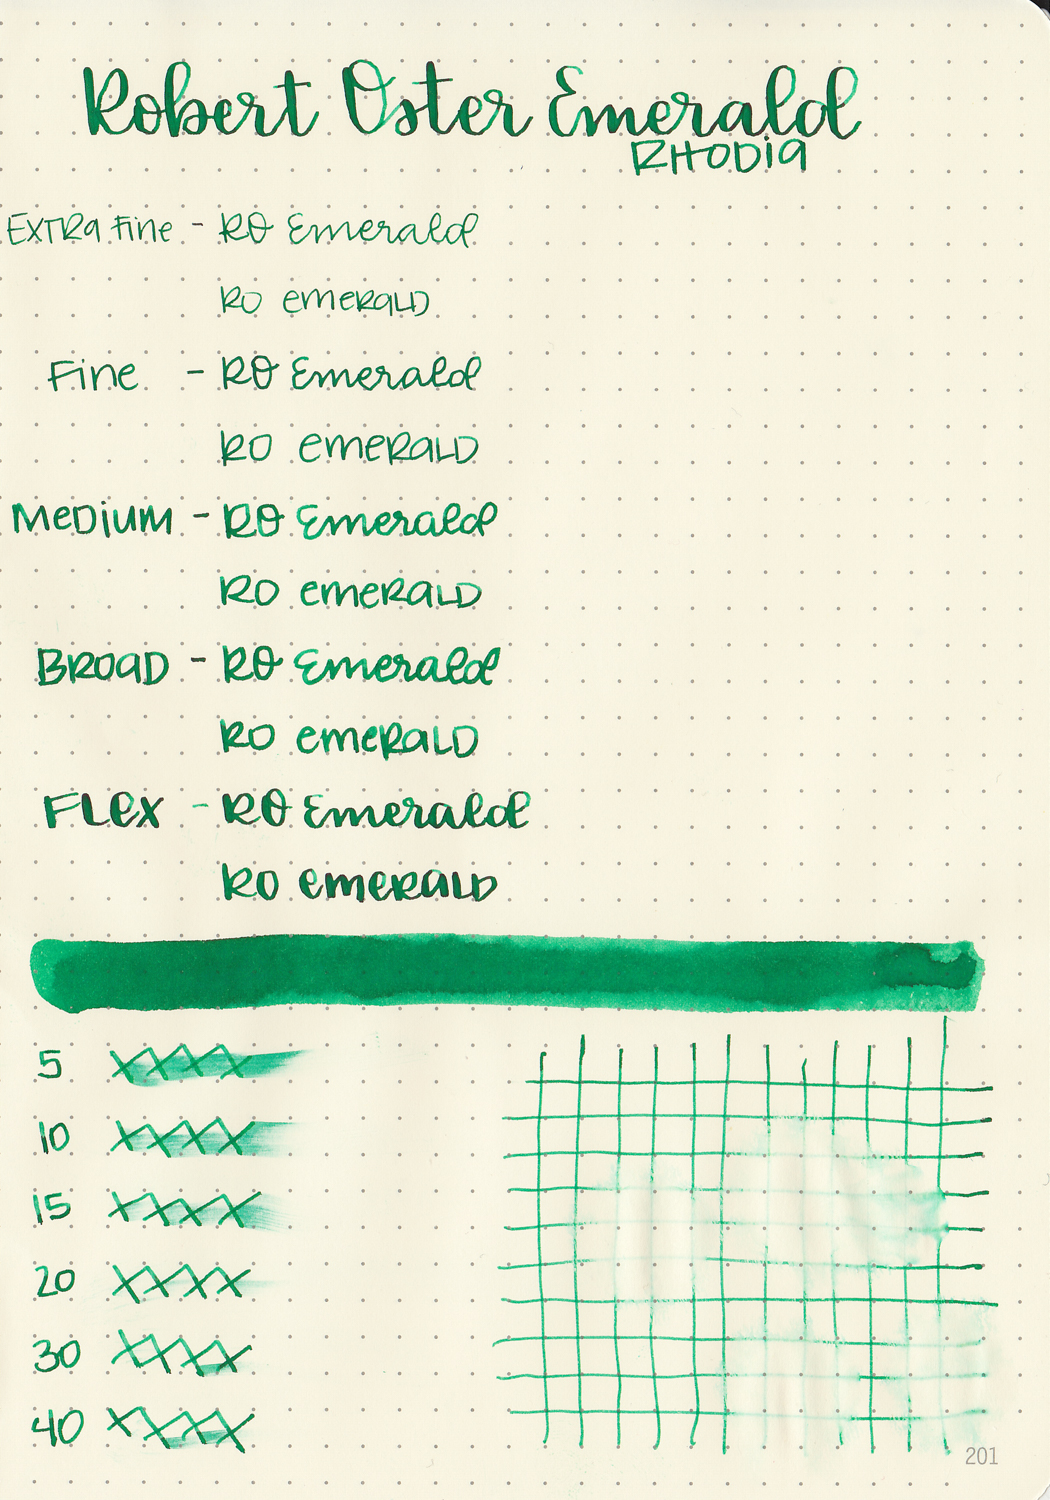 Robert Oster Emerald
RHODiA
EXTRA Fine - RO Emerald
RO emeRALD
Fine - RO Emerald
RO emeRALD
MeDiUM - RO Emerald
RO emeRALD
BROAD - RO Emerald
RO emeRALD
FLex - RO Emerald
RO emeRALD
5 XXXX
10 XXXX
15 XXXX
20 XXXX
30 XXXX
40 XXXX
201